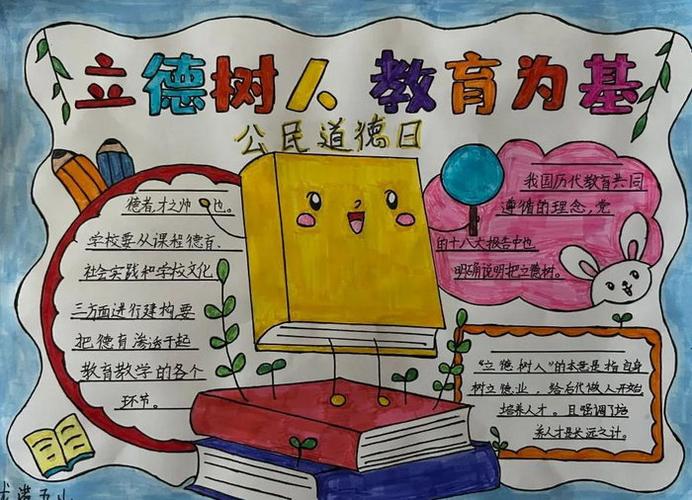 立德树人 教育为基
公民道德日
德者,才之帅也。
学校要从课程德育、
社会实践和学校文化
三方面进行建构要
把德育渗透于起
教育教学的各个
环节。
我国历代教育共同
遵循的理念,党
的十八大报告中也
明确说明把立德树。
"立德树人"的本意是指自身
树立德业,给后代做人开始
培养人才。且强调了培
养人才是长远之计。